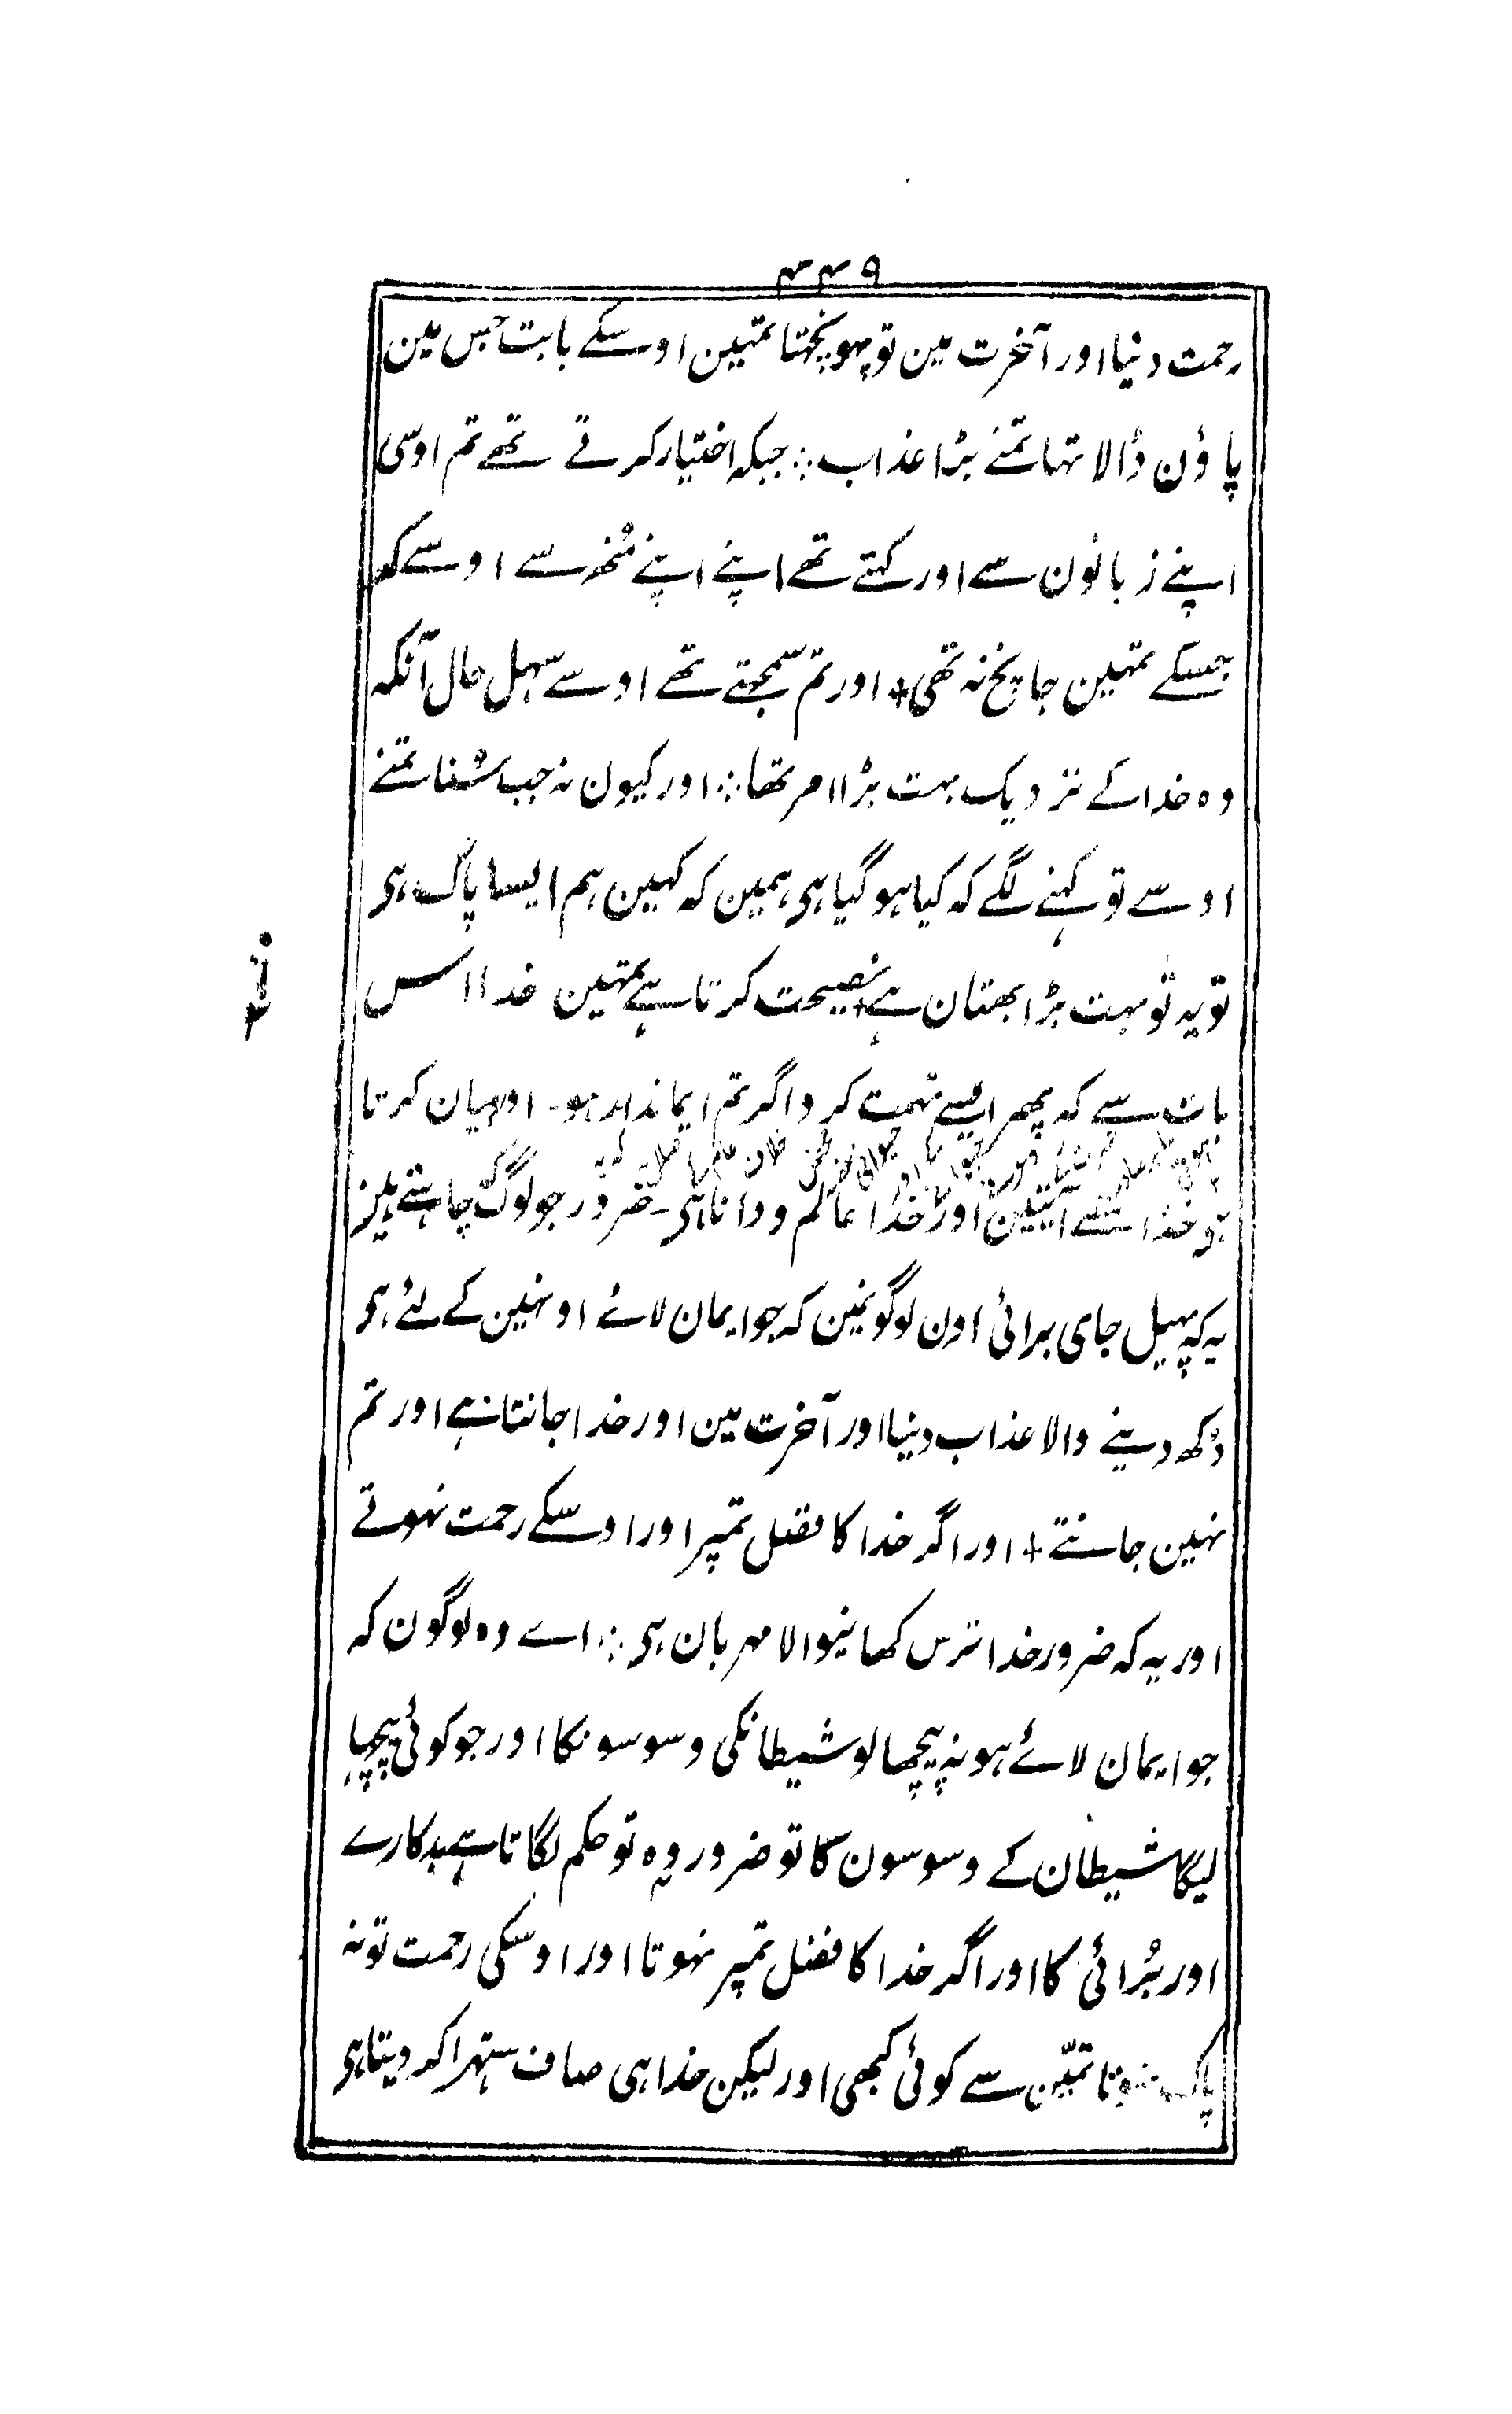 ۴۴۹
رحمت دنیا اور آخرت مین تو پہونچتا تمہین اوسکے بابت جس مین
پاؤن ڈالا تہا تمنے بڑا عذاب ؞ جبکہ اختیار کرتے تھے تم اوسی
اپنے زبانون سے اور کہتے تھے اپنے اپنے مُنھ سے اوسے کہ
جسکے تمہین جانچ نہ تھی + اور تم سمجھتے تھے اوسے سہل حال آنکہ
وہ خدا کے نزدیک بہت بڑا امر تھا ؞ اور کیون نہ جب سُنا تمنے
اوسے تو کہنے لگے کہ کیا ہو گیا ہی ہمین کہ کہین ہم ایسا پاک ہی
تو یہ تو بہت بڑا بھتان ہے + نصیحت کرتا ہے تمہین خدا اس
بات سے کہ پھر ایسے تہمت کرو اگر تم ایماندار ہو ۔ اور بیان کرتا
ہی خدا آیتین اور خدا عالم و دانا ہی ۔ ضرور جو لوگ چاہتے ہین
یہ کہ پہیل جای برائی اون لوگونمین کہ جو ایمان لائے اونہین کے لئے ہی
دُکھ دینے والا عذاب دنیا اور آخرت مین اور خدا جانتا ہے اور تم
نہین جانتے + اور اگر خدا کا فضل تمپر اور اوسکے رحمت نہوتے
اور یہ کہ ضرور خدا ترس کھانیوالا مہربان ہی ؞ اے وہ لوگون کہ
جو ایمان لائے ہو نہ پیچھا لو شیطانکی وسوسونکا اور جو کوئی پیچھا
لیگا شیطان کے وسوسون کا تو ضرور وہ تو حکم لگاتا ہے بدکارے
اور بُرائی کا اور اگر خدا کا فضل تمپر نہوتا اور اوسکی رحمت تو نہ
پاک ہوتا تمین سے کوئی کبھی اور لیکن خدا ہی صاف ستہرا کر دیتا ہی